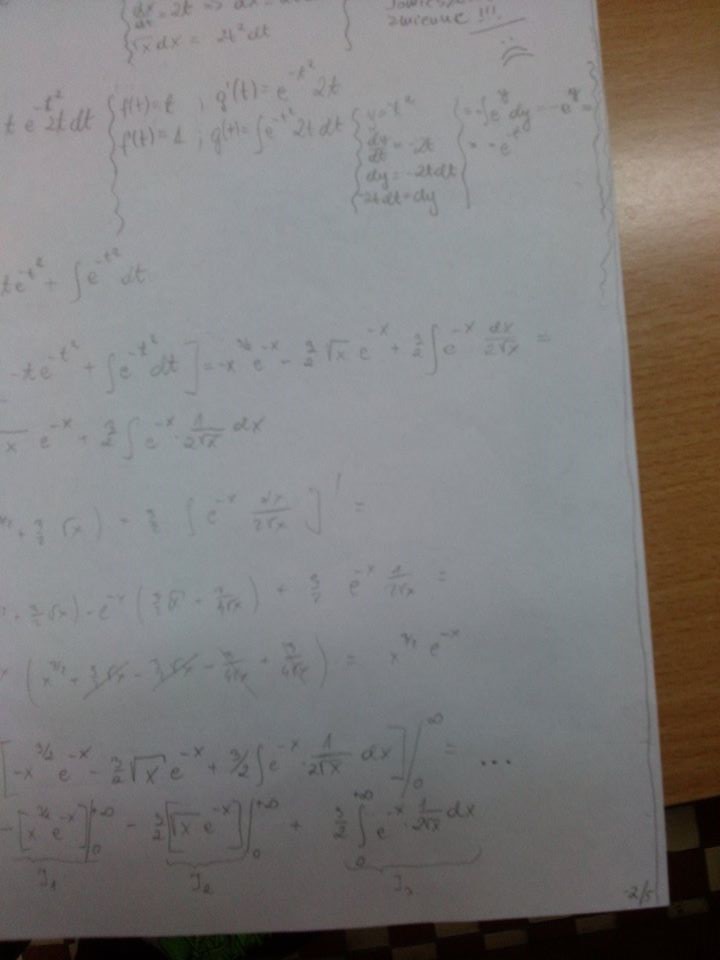 dx/dt = 2t => dx =
√x dx = 2t² dt
zmienne !!!
t e^{-t²} 2t dt { f(t) = t ; g'(t) = e^{-t²} 2t
f'(t) = 1 ; g(t) = ∫ e^{-t²} 2t dt { y = -t²
dy/dt = -2t
dy = -2t dt
-2t dt = dy
= -∫ e^y dy = -e^y =
= -e^{-t²}
t e^{-t²} + ∫ e^{-t²} dt
-t e^{-t²} + ∫ e^{-t²} dt ] = -x^{3/2} e^{-x} - 3/2 √x e^{-x} + 3/2 ∫ e^{-x} dx/2√x =
x e^{-x} + 3/2 ∫ e^{-x} · 1/2√x dx
+ 3/2 √x ) + 3/2 ∫ e^{-x} dx/2√x ]' =
+ 3/2 √x ) - e^{-x} ( 3/2 √x + 3/4√x ) + 3/2 e^{-x} 1/2√x =
( x^{3/2} + 3/2 √x - 3/2 √x - 3/4√x + 3/4√x ) = x^{3/2} e^{-x}
[ -x^{3/2} e^{-x} - 3/2 √x e^{-x} + 3/2 ∫ e^{-x} · 1/2√x dx ] |_0^∞ = ...
- [ x^{3/2} e^{-x} ] |_0^{+∞} - 3/2 [ √x e^{-x} ] |_0^{+∞} + 3/2 ∫_0^{+∞} e^{-x} · 1/2√x dx
J₁ J₂ J₃
-2/5